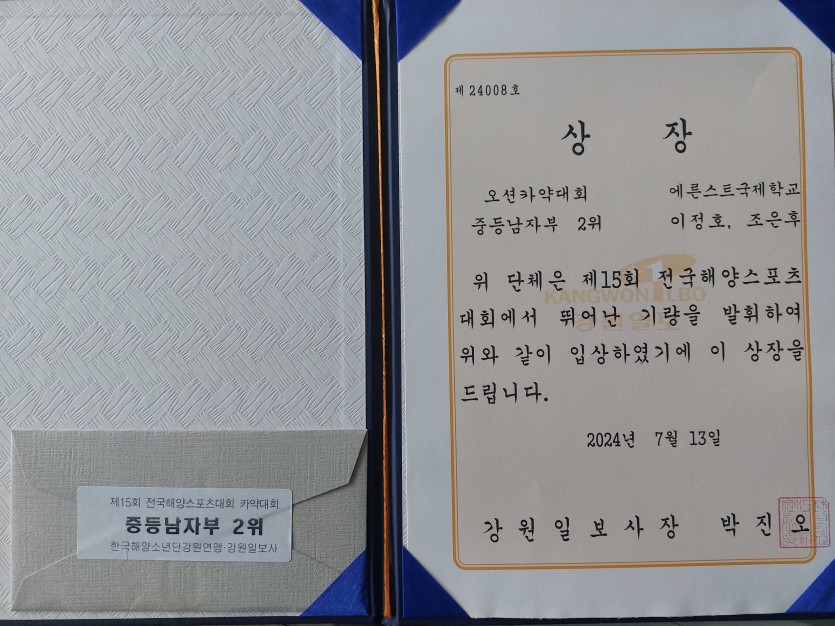 제15회 전국해양스포츠대회 카약대회
중등남자부 2위
한국해양소년단강원연맹·강원일보사
제 24008 호
상 장
오션카약대회 에른스트국제학교
중등남자부 2위 이정호, 조은후
위 단체은 제15회 전국해양스포츠
KANGWON ILBO
강원일보
대회에서 뛰어난 기량을 발휘하여
위와 같이 입상하였기에 이 상장을
드립니다.
2024년 7월 13일
강원일보사장 박진오